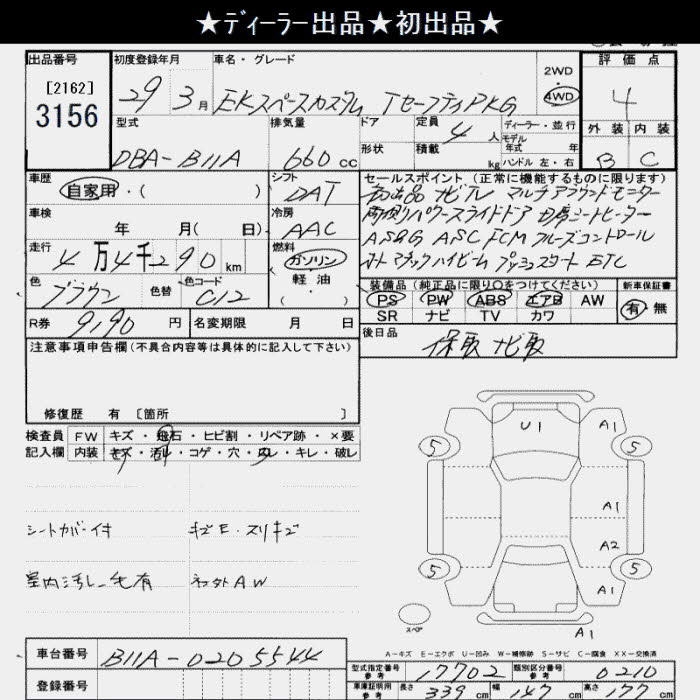 ★ディーラー出品★初出品★
出品番号
[2162]
3156
初度登録年月
29年3月
車名・グレード
EKスペースカスタム TセーフティPKG
2WD
4WD
評価点
4
外装 内装
B C
型式
DBA-B11A
排気量
660cc
ドア
形状
定員 4人
積載 kg
ディーラー・並行
モデル
年式 年
ハンドル 左・右
車歴
自家用・( )
シフト
DAT
車検
年 月( 日)
冷房
AAC
走行
4万4千290km
燃料
ガソリン
軽油
・( )
色
ブラウン
色替
色コード
C12
R券 9,190円
名変期限 月 日
セールスポイント(正常に機能するものに限ります)
初出品 ナビTV マルチアラウンドモニター
両側パワースライドドア 前席シートヒーター
AS&G ASC FCM クルーズコントロール
オートマチックハイビーム プッシュスタート ETC
装備品(純正品に限り○をつけてください)
PS PW ABS エアB AW
SR ナビ TV カワ
新車保証書
有・無
後日品
保取 ナビ取
注意事項申告欄(不具合内容等は具体的に記入して下さい)
修復歴 有 [箇所 ]
検査員
記入欄
FW キズ・飛石・ヒビ割・リペア跡・×要
内装 キズ・汚レ・コゲ・穴・ハレ・キレ・破レ
シートカバー付
キズE・スリキズ
室内汚レ 毛有
ネッ外AW
U1
A1
5
5
A1
A2
5
5
A1
スペア
A1
A-キズ E-エクボ U-凹み W-補修跡 S-サビ C-腐食 XX-交換済
車台番号 B11A-0205544
登録番号
型式指定番号
参考
17702
類別区分番号
参考
0210
車庫証明用
参考
長さ 339cm 幅 147cm 高さ 177cm